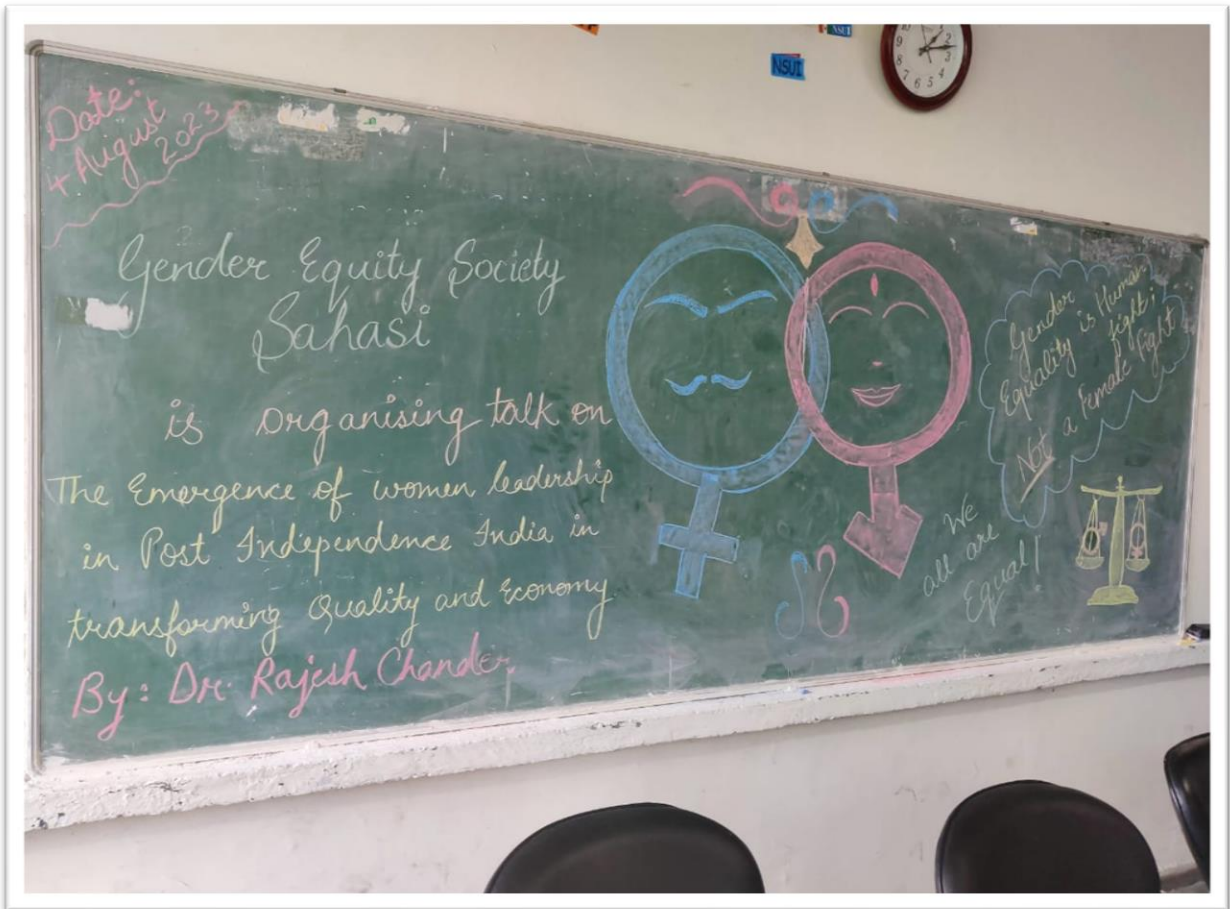 Date:
4 August
2023
Gender Equity Society
Sahasi
is organising talk on
The Emergence of women leadership
in Post Independence India in
transforming Quality and Economy
By: Dr. Rajesh Chander
Gender
Equality is Human
fight;
Not a Female Fight
We
all are
Equal!
NSUI
NSUI
10 1 2 3 4 5 6 7 8 9